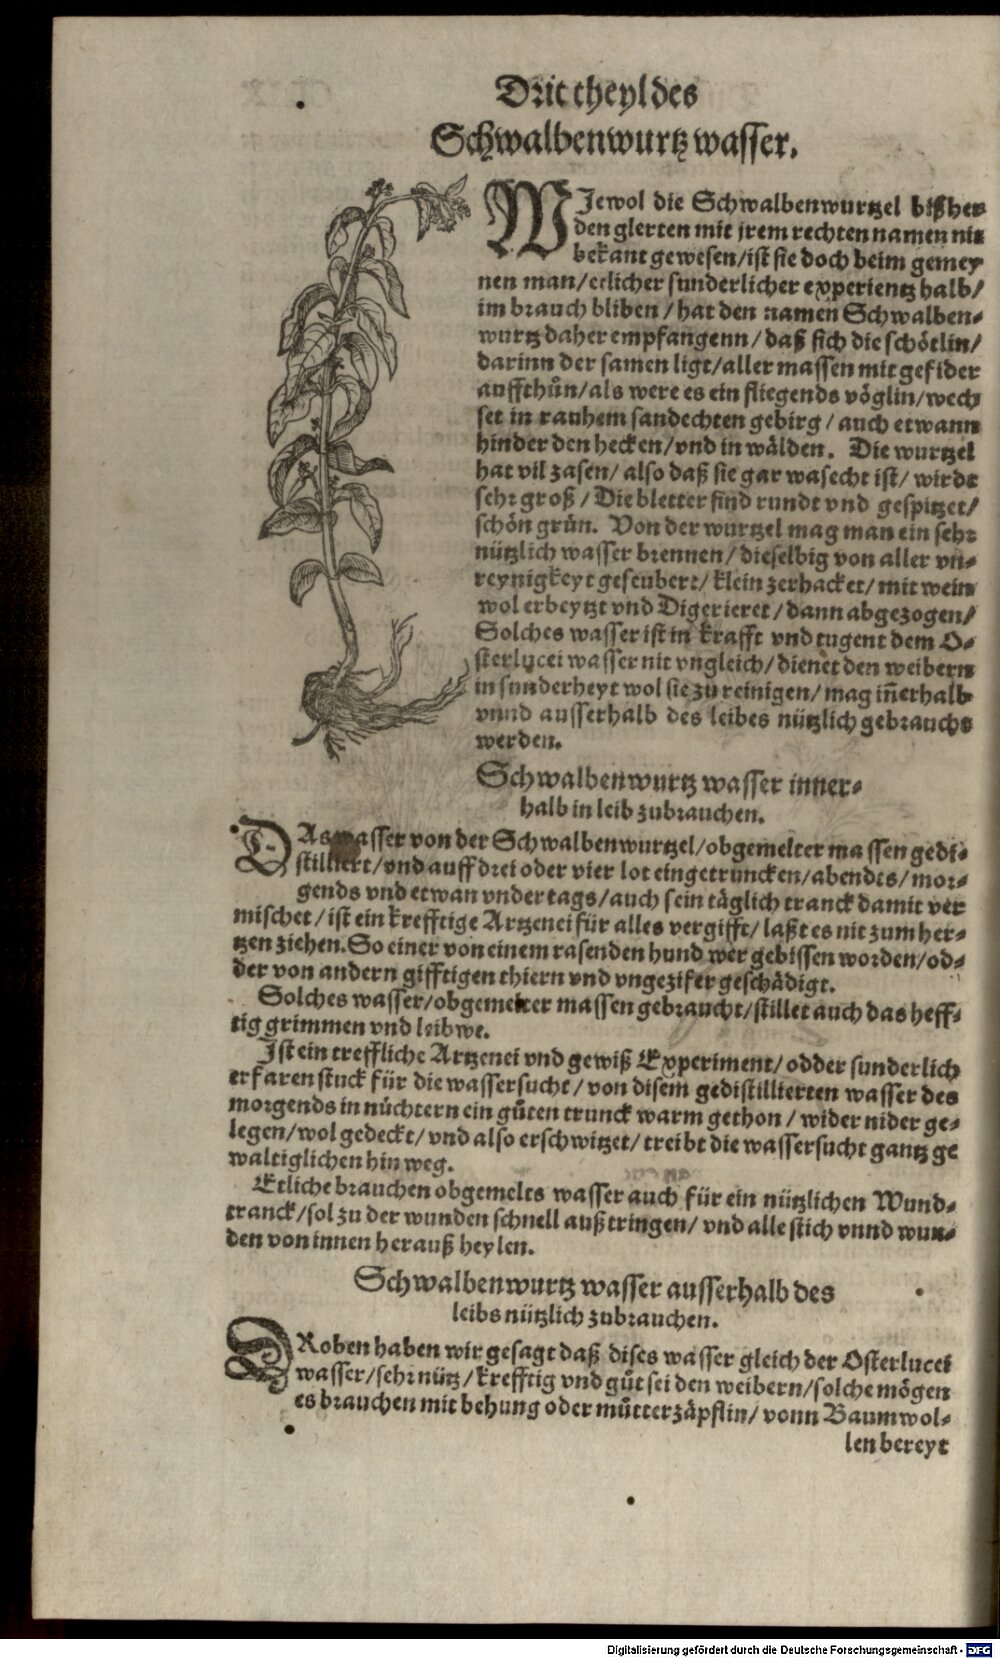 Drit theyl des
Schwalbenwurtz wasser.
WJewol die Schwalbenwurtzel bißher
den glerten mit jrem rechten namen nit
bekant gewesen/ist sie doch beim gemey
nen man/etlicher sunderlicher experientz halb/
im brauch bliben/hat den namen Schwalben-
wurtz daher empfangenn/daß sich die schötlin/
darinn der samen ligt/aller massen mit gefider
auffthůn/als were es ein fliegends vöglin/wech
set in rauhem sandechten gebirg/auch etwann
hinder den hecken/vnd in wälden. Die wurtzel
hat vil zasen/also daß sie gar wasecht ist/wirdt
sehr groß/Die bletter sind rundt vnd gespitzet/
schön grün. Von der wurtzel mag man ein sehr
nützlich wasser brennen/dieselbig von aller vn-
reynigkeyt geseubert/klein zerhacket/mit wein
wol erbeytzt vnd Digerieret/dann abgezogen/
Solches wasser ist in krafft vnd tugent dem O-
sterlucei wasser nit vngleich/dienet den weibern
in sunderheyt wol sie zu reinigen/mag iñerhalb
vnnd ausserhalb des leibes nützlich gebraucht
werden.
Schwalbenwurtz wasser inner-
halb in leib zubrauchen.
DAs wasser von der Schwalbenwurtzel/obgemelter massen gedi-
stilliert/vnd auff drei oder vier lot eingetruncken/abendts/mor-
gends vnd etwan vnder tags/auch sein täglich tranck damit ver
mischet/ist ein krefftige Artzenei für alles vergifft/laßt es nit zum her-
tzen ziehen. So einer von einem rasenden hund wer gebissen worden/od-
der von andern gifftigen thiern vnd vngezifer geschädigt.
Solches wasser/obgemelter massen gebraucht/stillet auch das heff-
tig grimmen vnd leibwe.
Jst ein treffliche Artzenei vnd gewiß Experiment/odder sunderlich
erfaren stuck für die wassersucht/von disem gedistillierten wasser des
morgends in nüchtern ein gůten trunck warm gethon/wider nider ge-
legen/wol gedeckt/vnd also erschwitzet/treibt die wassersucht gantz ge
waltiglichen hin weg.
Etliche brauchen obgemelts wasser auch für ein nützlichen Wund-
tranck/sol zu der wunden schnell auß tringen/vnd alle stich vnnd wun-
den von innen herauß heylen.
Schwalbenwurtz wasser ausserhalb des
leibs nützlich zubrauchen.
DRoben haben wir gesagt daß dises wasser gleich der Osterlucei
wasser/sehr nütz/krefftig vnd gůt sei den weibern/solche mögen
es brauchen mit behung oder můtterzäpflin/vonn Baumwol-
len bereyt
Digitalisierung gefördert durch die Deutsche Forschungsgemeinschaft - DFG